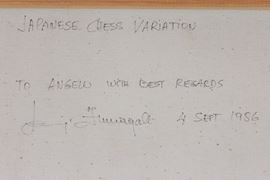 JAPANESE CHESS VARIATION
TO ANGELO WITH BEST REGARDS
4 SEPT 1986